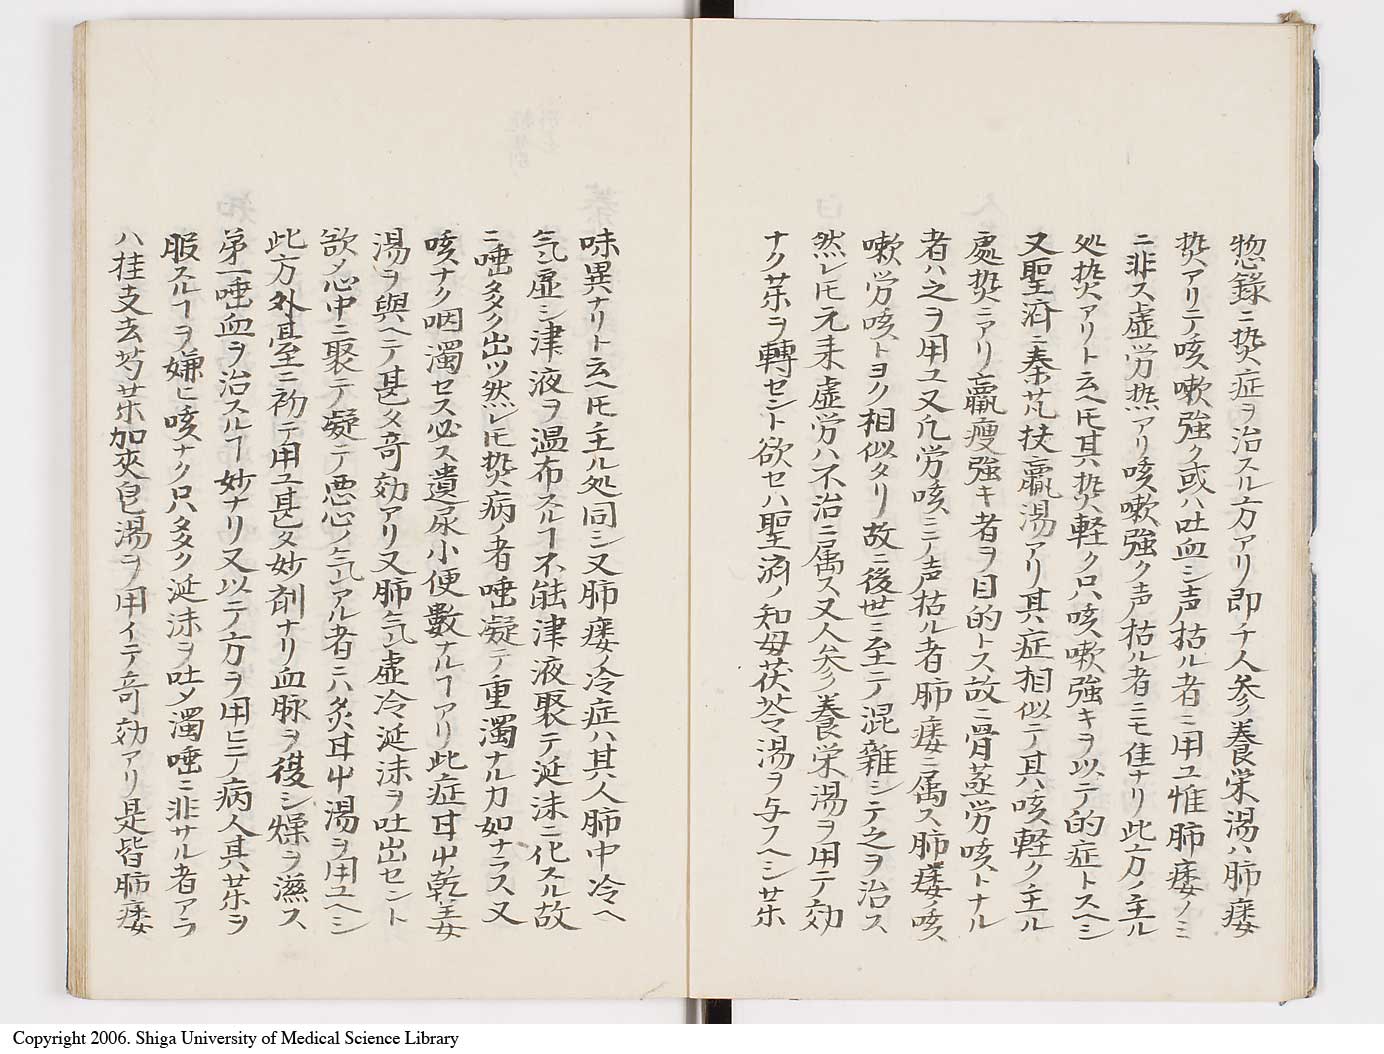 惣錄ニ𤍠症ヲ治スル方アリ即チ人参養栄湯ハ肺痿
𤍠アリテ咳嗽強ク或ハ吐血シ声枯ル者ニ用ユ惟肺痿ノミ
ニ非ス虚労熱アリ咳嗽強ク声枯ル者ニモ佳ナリ此方ノ主ル
処𤍠アリト云ヘ𪜈其𤍠軽ク只咳嗽強キヲ以テ的症トスヘシ
又聖済ニ秦芃扶羸湯アリ其症相似テ其咳軽ク主ル
處𤍠ニアリ羸痩強キ者ヲ目的トス故ニ骨蒸労咳トナル
者ハ之ヲ用ユ又凡労咳ミニテ声枯ル者肺痿ニ属ス肺痿ノ咳
嗽労咳トヨク相似タリ故ニ後世ニ至テ混雜シテ之ヲ治ス
然レ𪜈元来虚労ハ不治ニ属ス又人参養栄湯ヲ用テ効
ナク茱ヲ轉セント欲セハ聖済ノ知母茯苓湯ヲ与フヘシ茱
味異ナリト云ヘ𪜈主ル処同シ又肺痿ノ冷症ハ其人肺中冷ヘ
气虚シ津液ヲ温布スルヿ不能津液聚テ延沫ニ化スル故
ニ唾多ク出ツ然レ𪜈𤍠病ノ者唾凝テ重濁ナルカ如ナラス又
咳ナク咽濁セス必ス遺尿小便數ナルヿアリ此症甘屮乾姜
湯ヲ與ヘテ甚タ奇効アリ又肺气虚冷延沫ヲ吐出セント
欲ノ心中ニ聚テ凝テ悪心ノ气アル者ニハ炙甘屮湯ヲ用ユヘシ
此方外臺ニ初テ用ユ甚タ妙剤ナリ血脉ヲ復シ燥ヲ滋ス
第一唾血ヲ治スルヿ妙ナリ又以テ方ヲ用ヒテ病人其茱ヲ
服スルヿヲ嫌ヒ咳ナク只多ク延沫ヲ吐メ濁唾ニ非サル者アラ
ハ桂支去芍茱加夾皂湯ヲ用イテ奇効アリ是皆肺痿
Copyright 2006. Shiga University of Medical Science Library